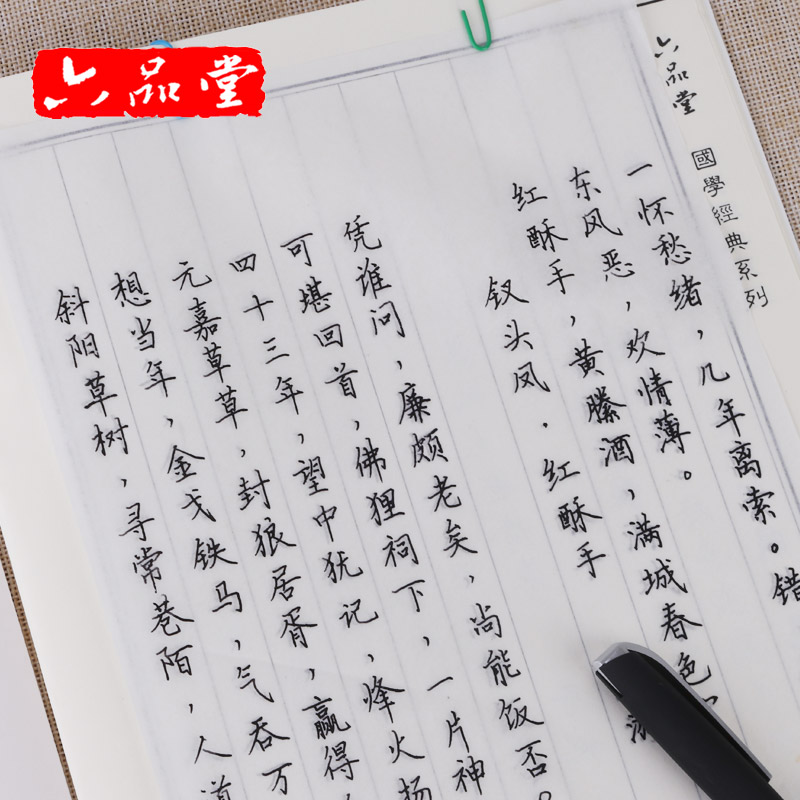 六品堂
六品堂
國學經典系列
斜阳草树，寻常巷陌，人道
想当年，金戈铁马，气吞万
元嘉草草，封狼居胥，赢得
四十三年，望中犹记，烽火扬
可堪回首，佛狸祠下，一片神
凭谁问，廉颇老矣，尚能饭否。
钗头凤．红酥手
红酥手，黄縢酒，满城春色
东风恶，欢情薄。
一怀愁绪，几年离索。错